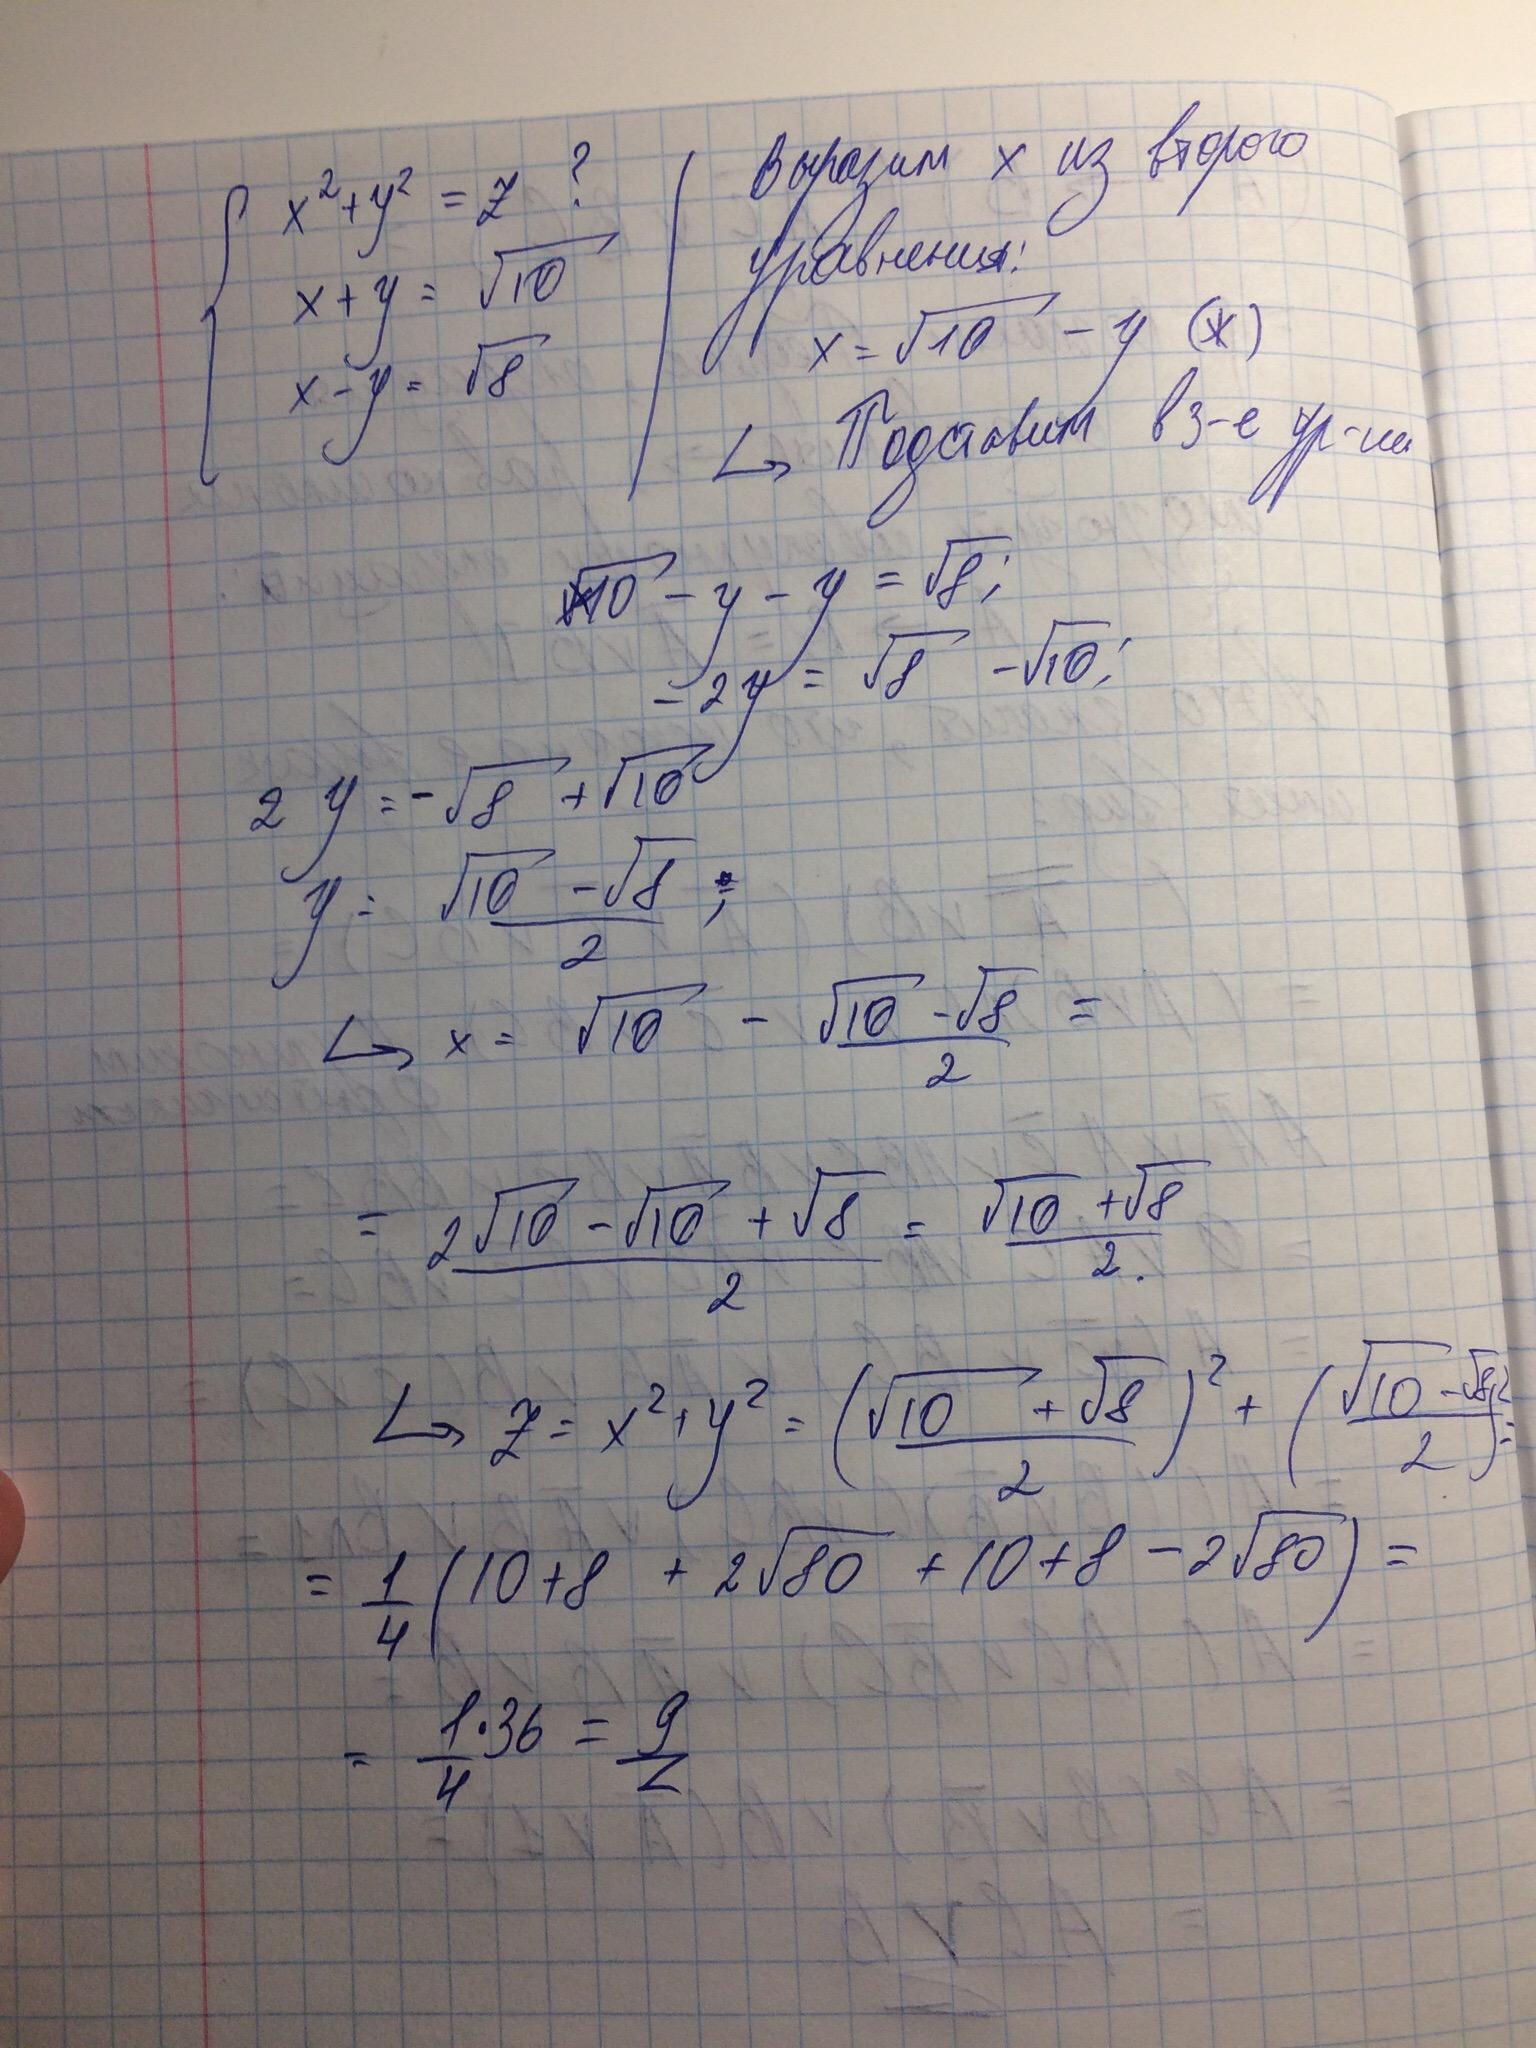 x²+y² = z ?
x+y = √10
x-y = √8
Выразим x из второго
уравнения:
x = √10 - y (*)
↳ Подставим в 3-е ур-ии
√10 - y - y = √8;
-2y = √8 - √10;
2y = -√8 + √10
y = (√10 - √8)/2;
↳ x = √10 - (√10 - √8)/2 =
= (2√10 - √10 + √8)/2 = (√10 + √8)/2.
↳ z = x²+y² = ((√10 + √8)/2)² + ((√10 - √8)/2)² =
= 1/4 (10+8 + 2√80 + 10+8 - 2√80) =
= 1/4 · 36 = 9/